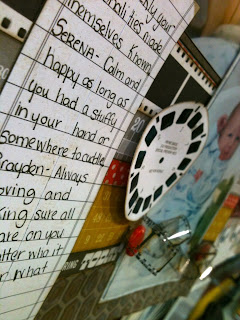 only your
alities made
themselves known
SERENA- Calm and
happy as long as
you had a stuffy
in your hand or
somewhere to cuddle
Brayden- Always
loving and
king sure all
are on you
atter who it
or what
20